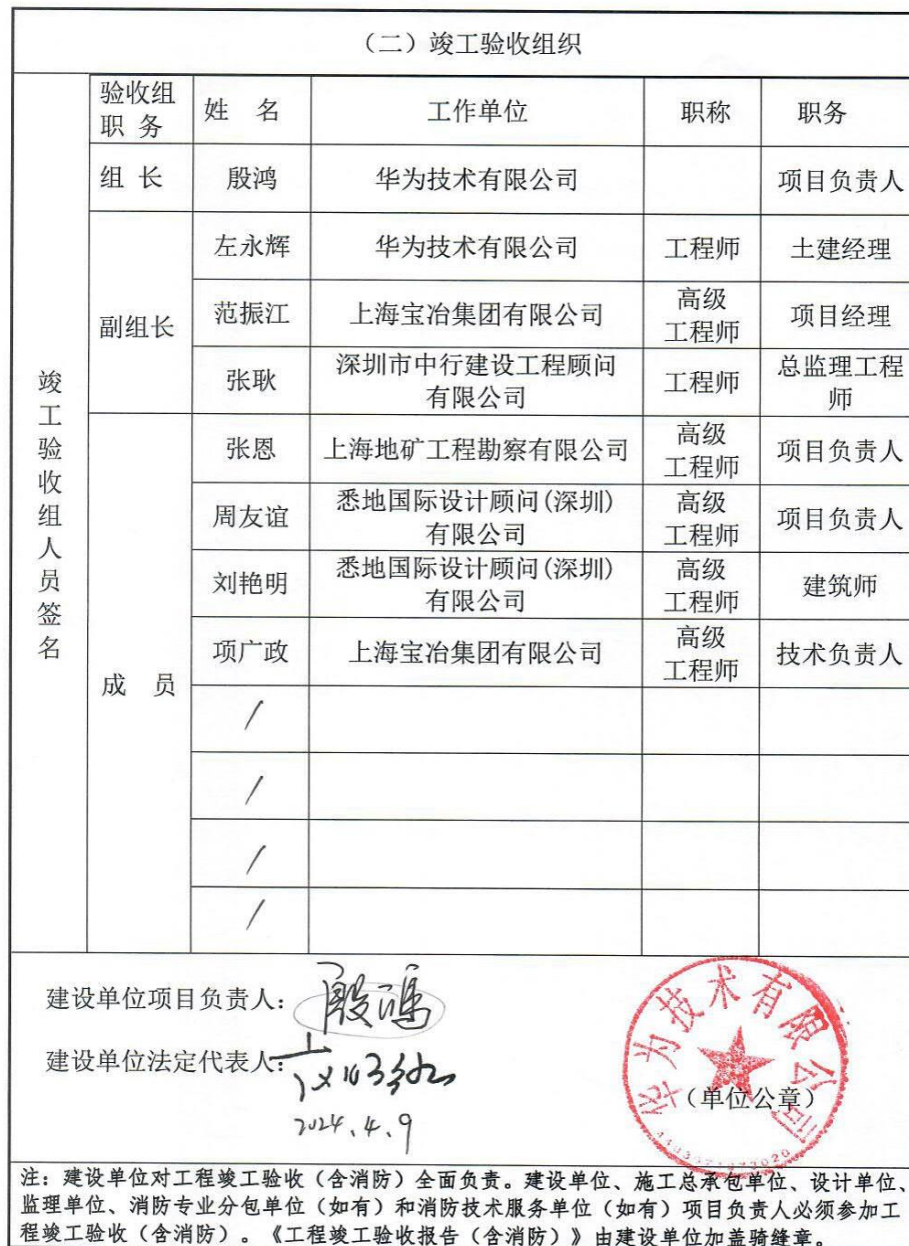 （二）竣工验收组织
竣工验收组人员签名
验收组职 务 姓 名 工作单位 职称 职务
组 长 殷鸿 华为技术有限公司 项目负责人
副组长
左永辉 华为技术有限公司 工程师 土建经理
范振江 上海宝冶集团有限公司 高级工程师 项目经理
张耿 深圳市中行建设工程顾问有限公司 工程师 总监理工程师
成 员
张恩 上海地矿工程勘察有限公司 高级工程师 项目负责人
周友谊 悉地国际设计顾问(深圳)有限公司 高级工程师 项目负责人
刘艳明 悉地国际设计顾问(深圳)有限公司 高级工程师 建筑师
项广政 上海宝冶集团有限公司 高级工程师 技术负责人
/
/
/
/
建设单位项目负责人：殷鸿
建设单位法定代表人：
2024.4.9
华为技术有限公司
（单位公章）
注：建设单位对工程竣工验收（含消防）全面负责。建设单位、施工总承包单位、设计单位、
监理单位、消防专业分包单位（如有）和消防技术服务单位（如有）项目负责人必须参加工
程竣工验收（含消防）。《工程竣工验收报告（含消防）》由建设单位加盖骑缝章。